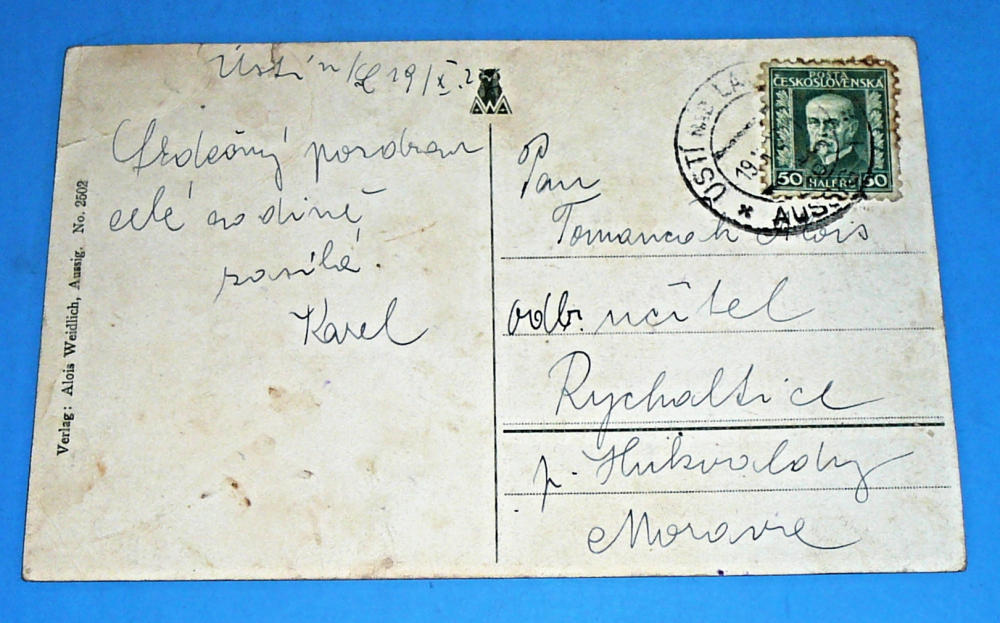 Ústí n/L 19/X.
Srdečný pozdrav
celé rodině
zasílá.
Karel
Verlag: Alois Weidlich, Aussig. No. 2502
AWA
POŠTA
ČESKOSLOVENSKÁ
50 HALÉŘŮ 50
ÚSTÍ NAD LA
19.
* AUSS
Pan
Tomancak Alois
odb. učitel
Rychaltice
p. Hukvaldy
Morava